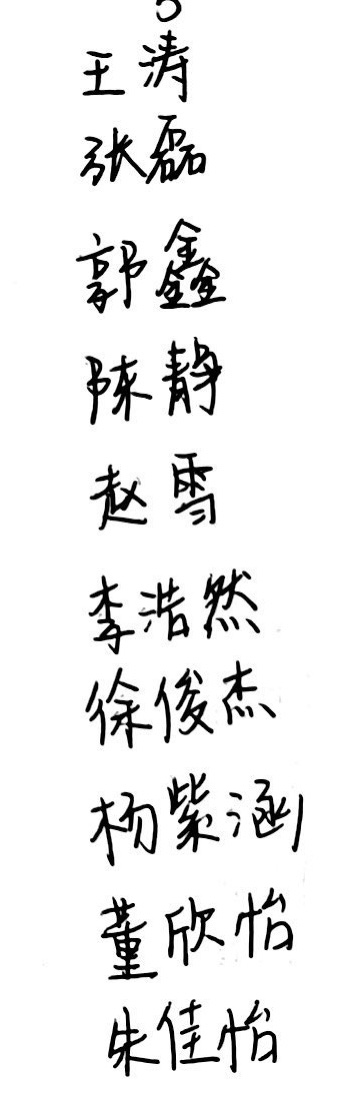 王涛
张磊
郭鑫
陈静
赵雪
李浩然
徐俊杰
杨紫涵
董欣怡
朱佳怡